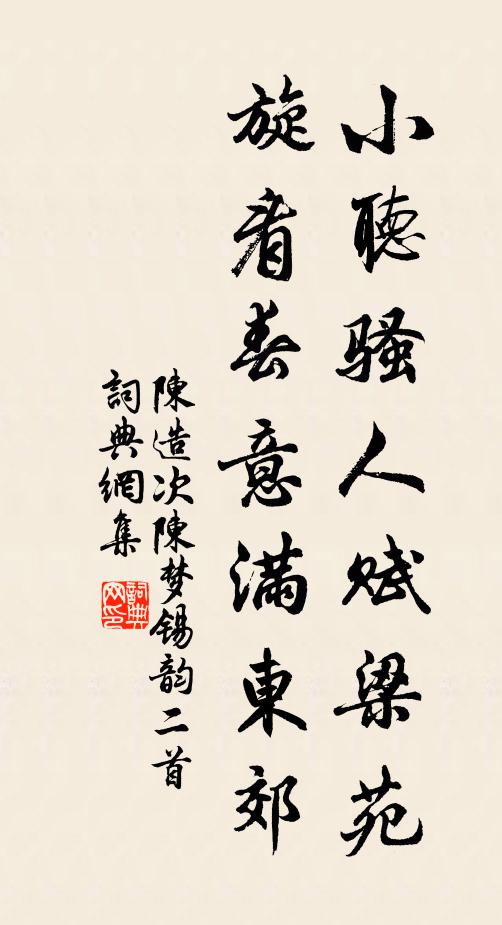 小聽騷人賦梁苑
旋看春意滿東郊
陳造次陳梦锡韵二首
詞典網集
詞典网印